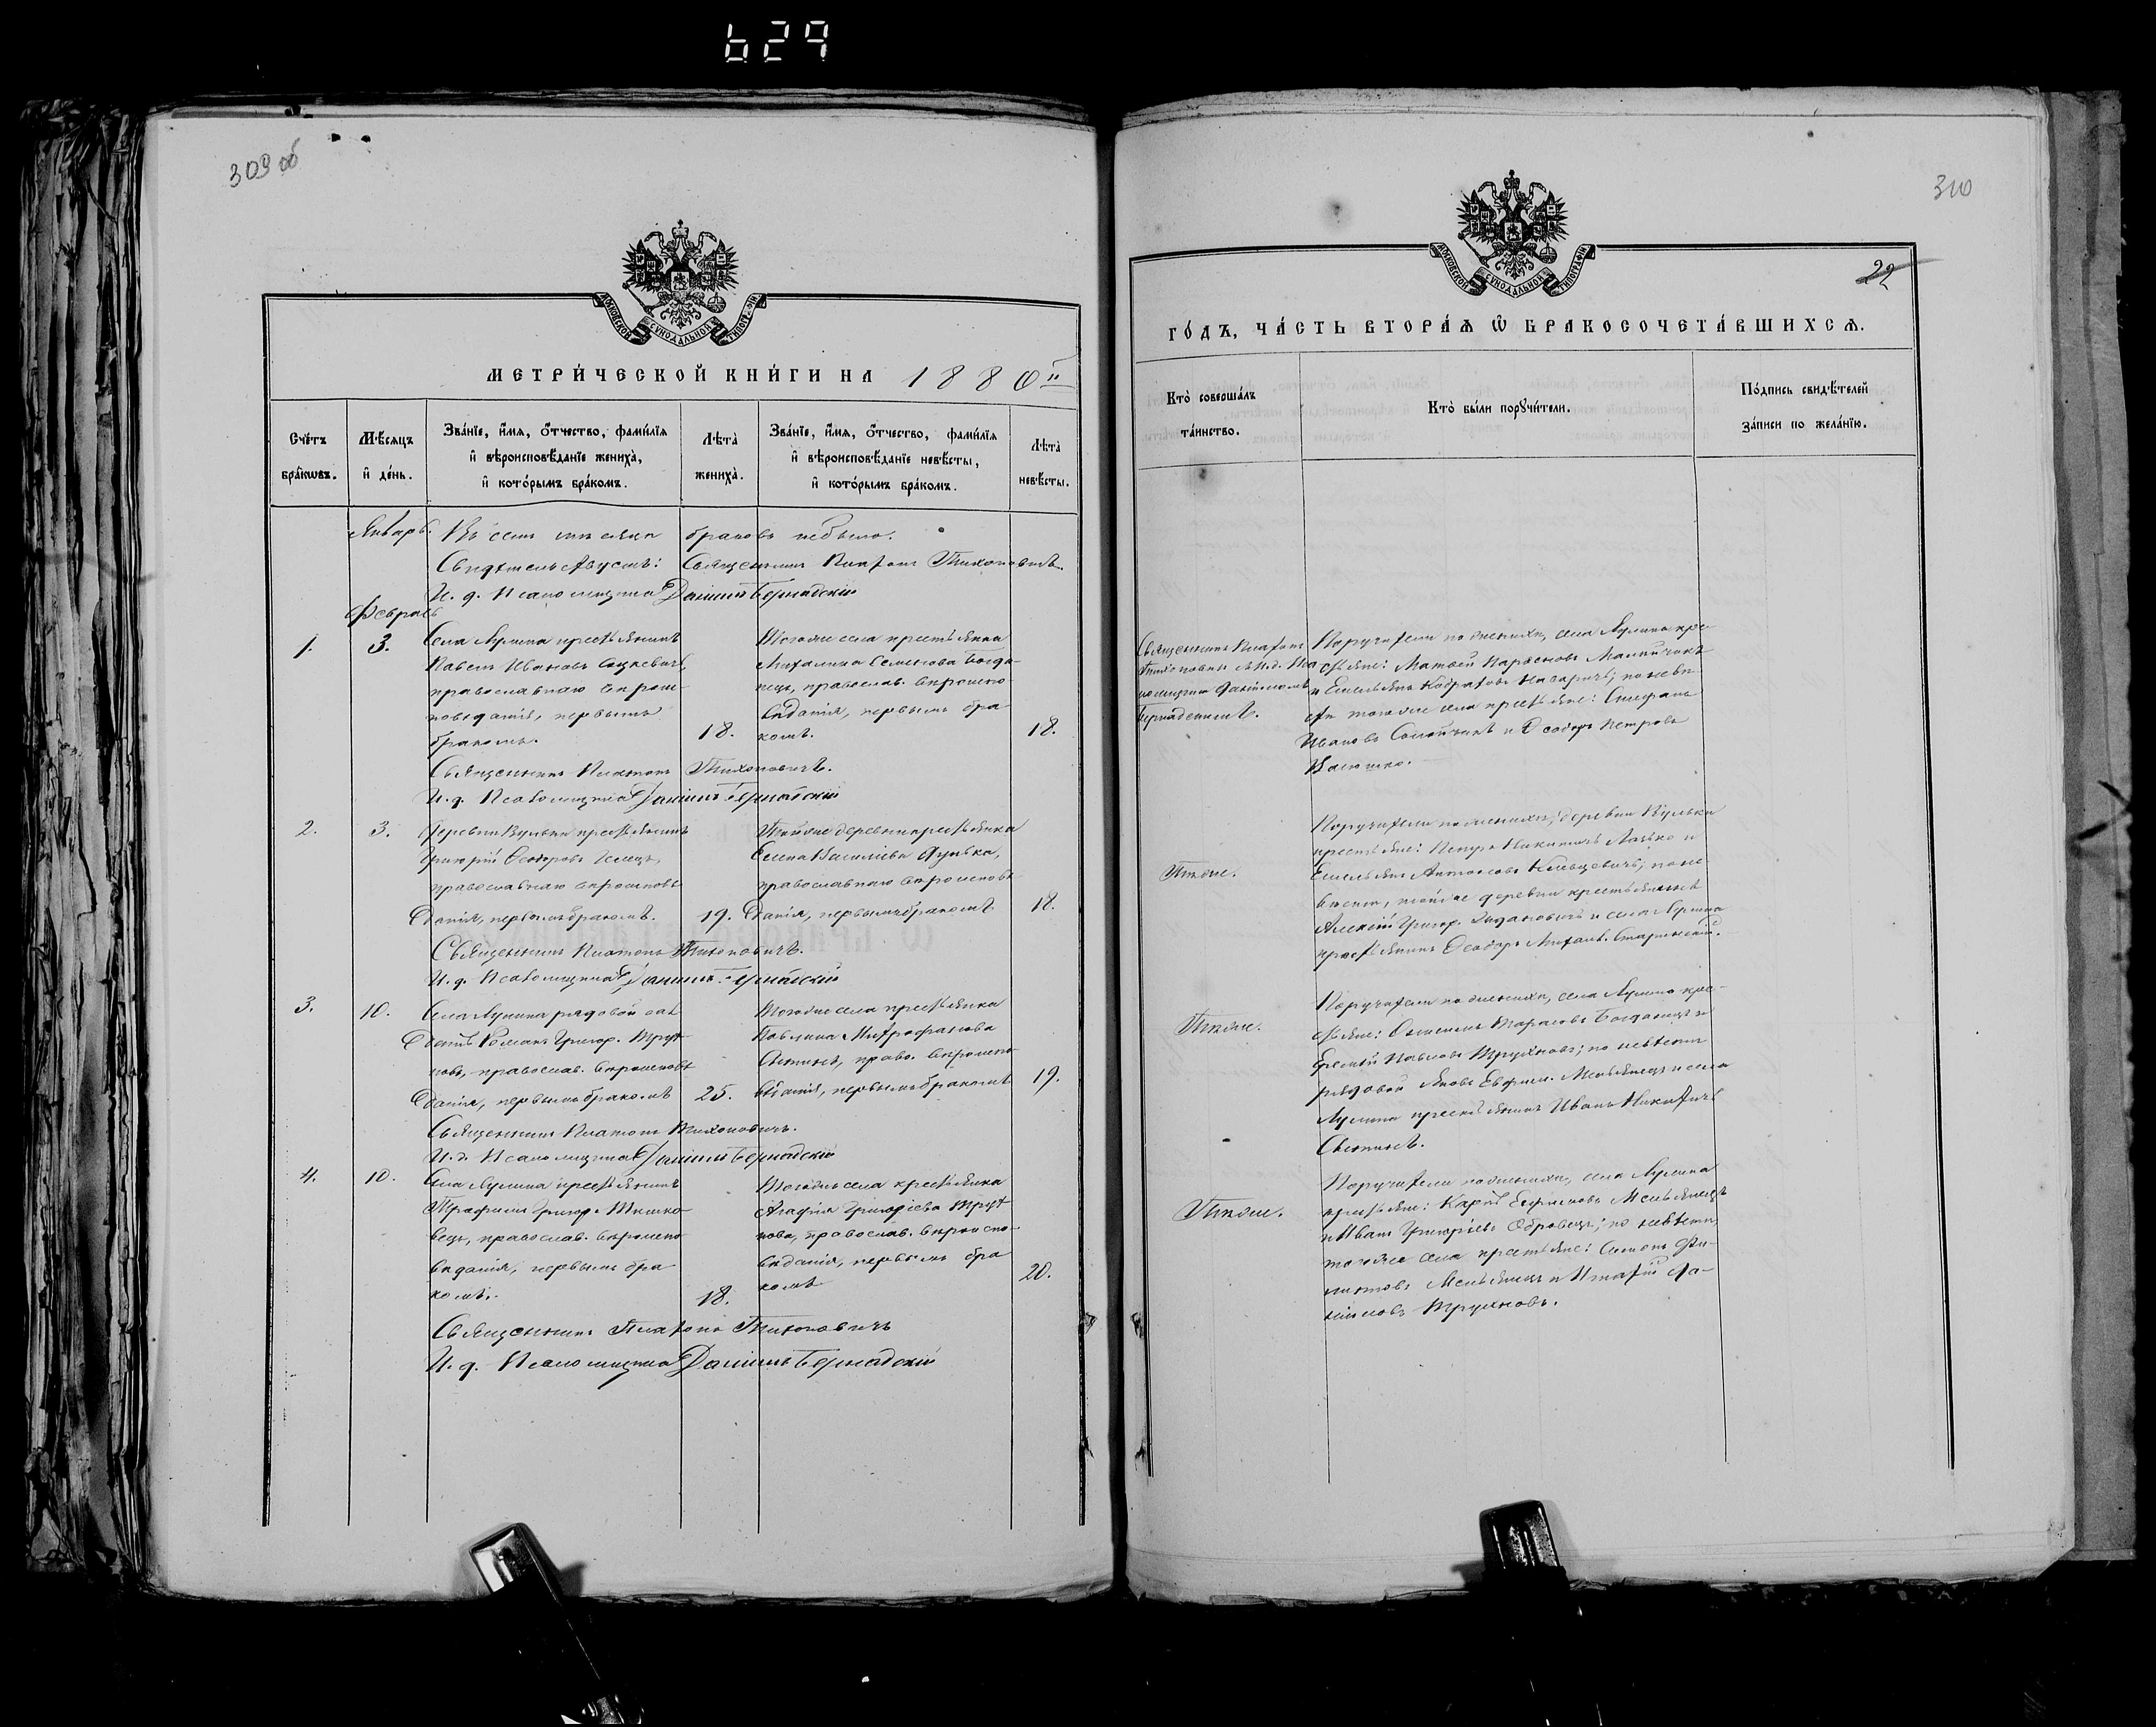 629
309 об
МОСКОВСКОЙ СѴНОДАЛЬНОЙ ТИПОГРАФІИ
МЕТРИ́ЧЕСКОЙ КНИ́ГИ НА 1880й
Сче́тъ бра́кѡвъ.
Мѣ́сяцъ и҆ де́нь.
Зва́нїе, и҆́мѧ, ѻ҆́тчество, фами́лїѧ
и҆ вѣроисповѣ́данїе жениха̀,
и҆ кото́рымъ бра́комъ.
Лѣ́та жениха̀.
Зва́нїе, и҆́мѧ, ѻ҆́тчество, фами́лїѧ
и҆ вѣроисповѣ́данїе невѣ́сты,
и҆ кото́рымъ бра́комъ.
Лѣ́та невѣ́сты.
Январь. Въ семъ мѣсяцѣ браковъ небыло.
Свидѣтельствуемъ: Священникъ Платонъ Тихоновичъ.
И. д. Псаломщика Даніилъ Бернадскій
Февраль
1. 3.
Села Лунина крестьянинъ
Павелъ Ивановъ
православнаго вѣроис-
повѣданія, первымъ
бракомъ.
18.
Тогоже села крестьянка
Михалина Семенова Богда-
нецъ, православ. вѣроиспо-
вѣданія, первымъ бра-
комъ.
18.
Священникъ Платонъ Тихоновичъ.
И. д. Псаломщика Даніилъ Бернадскій
2. 3.
Деревни Вульки крестьянинъ
Григорій Ѳеодоровъ
православнаго вѣроисповѣ-
данія, первымъ бракомъ.
19.
Тойже деревни крестьянка
Елена Василіева
православнаго вѣроисповѣ-
данія, первымъ бракомъ
18.
Священникъ Платонъ Тихоновичъ.
И. д. Псаломщика Даніилъ Бернадскій
3. 10.
Села Лунина рядовой сол-
датъ Романъ Григор. Трух-
новъ, православ. вѣроисповѣ-
данія, первымъ бракомъ
25.
Тогоже села крестьянка
Павлина Митрофанова
право. вѣроиспо-
вѣданія, первымъ бракомъ
19.
Священникъ Платонъ Тихоновичъ.
И. д. Псаломщика Даніилъ Бернадскій
4. 10.
Села Лунина крестьянинъ
Трофимъ Григор. Тишко-
вецъ, православ. вѣроиспо-
вѣданія, первымъ бра-
комъ.
18.
Тогоже села крестьянка
Агафія Григоріева Трух-
нова, православ. вѣроиспо-
вѣданія, первымъ бра-
комъ
20.
Священникъ Платонъ Тихоновичъ
И. д. Псаломщика Даніилъ Бернадскій
310
МОСКОВСКОЙ СѴНОДАЛЬНОЙ ТИПОГРАФІИ
22
ГО́ДЪ, ЧА́СТЬ ВТОРА́Ѧ Ѡ҆ БРАКОСОЧЕТА́ВШИХСѦ.
Кто̀ соверша́лъ
та́инство.
Кто̀ бы́ли порꙋчи́тели.
По́дпись свидѣ́телей
за́писи по жела́нїю.
Священникъ Платонъ
Тихоновичъ съ И. д. Пса-
ломщика Даніиломъ
Бернадскимъ.
Поручители по женихѣ, села Лунина кре-
стьяне: Матѳей
и Емельянъ Кодратовъ; по невѣ-
стѣ тогоже села крестьяне: Стефанъ
Ивановъ и Ѳеодоръ Петровъ
Тѣже.
Поручители по женихѣ, деревни Вульки
крестьяне: Петръ Никитичъ и
Емельянъ Антоновъ; по не-
вѣстѣ, тойже деревни крестьянинъ
Алексій Григор. и села Лунина
крестьянинъ Ѳеодоръ Михаил.
Тѣже.
Поручители по женихѣ, села Лунина кре-
стьяне: Тарасовъ Богданецъ и
Еремѣй Павловъ Трухновъ; по невѣстѣ
рядовой Яковъ Евфим. Мельянецъ и села
Лунина крестьянинъ Иванъ Никитичъ
Тѣже.
Поручители по женихѣ, села Лунина
крестьяне: Карпъ Ефимовъ Мельянецъ
и Иванъ Григоріевъ; по невѣстѣ,
тогоже села крестьяне: Симонъ
Мельянецъ и Игнатій
Трухновъ.